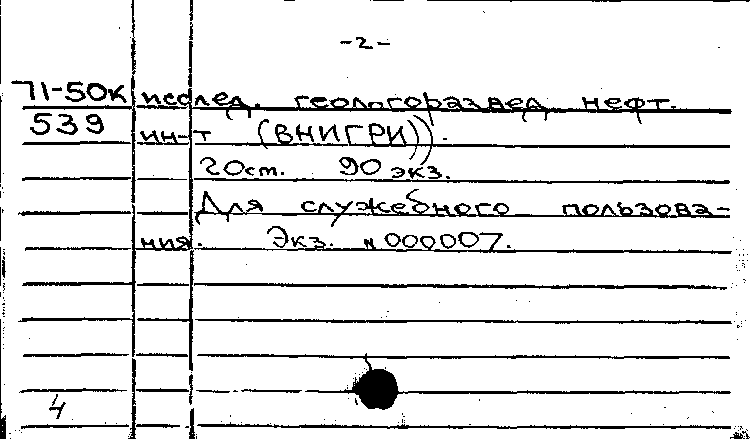 -2-
71-50к исслед. геологоразвед нефт.
539 ин-т (ВНИГРИ)).
20 ст. 90 экз.
Для служебного пользова-
ния. Экз. № 000007.
4